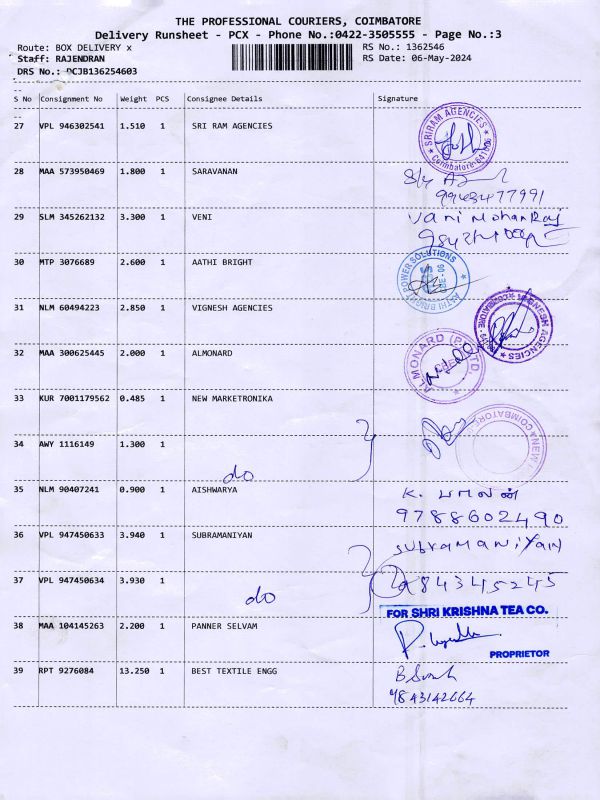 THE PROFESSIONAL COURIERS, COIMBATORE
Delivery Runsheet - PCX - Phone No.:0422-3505555 - Page No.:3
Route: BOX DELIVERY x RS No.: 1362546
Staff: RAJENDRAN RS Date: 06-May-2024
DRS No.: PCJB136254603
S No Consignment No Weight PCS Consignee Details Signature
27 VPL 946302541 1.510 1 SRI RAM AGENCIES
SRIRAM AGENCIES
Coimbatore
28 MAA 573950469 1.800 1 SARAVANAN
29 SLM 345262132 3.300 1 VENI
30 MTP 3076689 2.600 1 AATHI BRIGHT
AATHI BRIGHT POWER SOLUTIONS
31 NLM 60494223 2.850 1 VIGNESH AGENCIES
32 MAA 300625445 2.000 1 ALMONARD
ALMONARD (P) LTD.
33 KUR 7001179562 0.485 1 NEW MARKETRONIKA
34 AWY 1116149 1.300 1
do
35 NLM 90407241 0.900 1 AISHWARYA K.
9788602490
36 VPL 947450633 3.940 1 SUBRAMANIYAN SUBRAMANIYAN
37 VPL 947450634 3.930 1
do
FOR SHRI KRISHNA TEA CO.
38 MAA 104145263 2.200 1 PANNER SELVAM
PROPRIETOR
39 RPT 9276084 13.250 1 BEST TEXTILE ENGG
9843142664